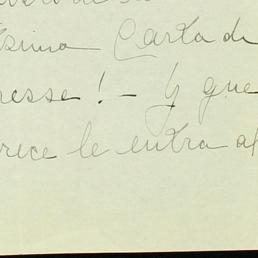 sima Carta de
resse! – Y que
rece le entra al